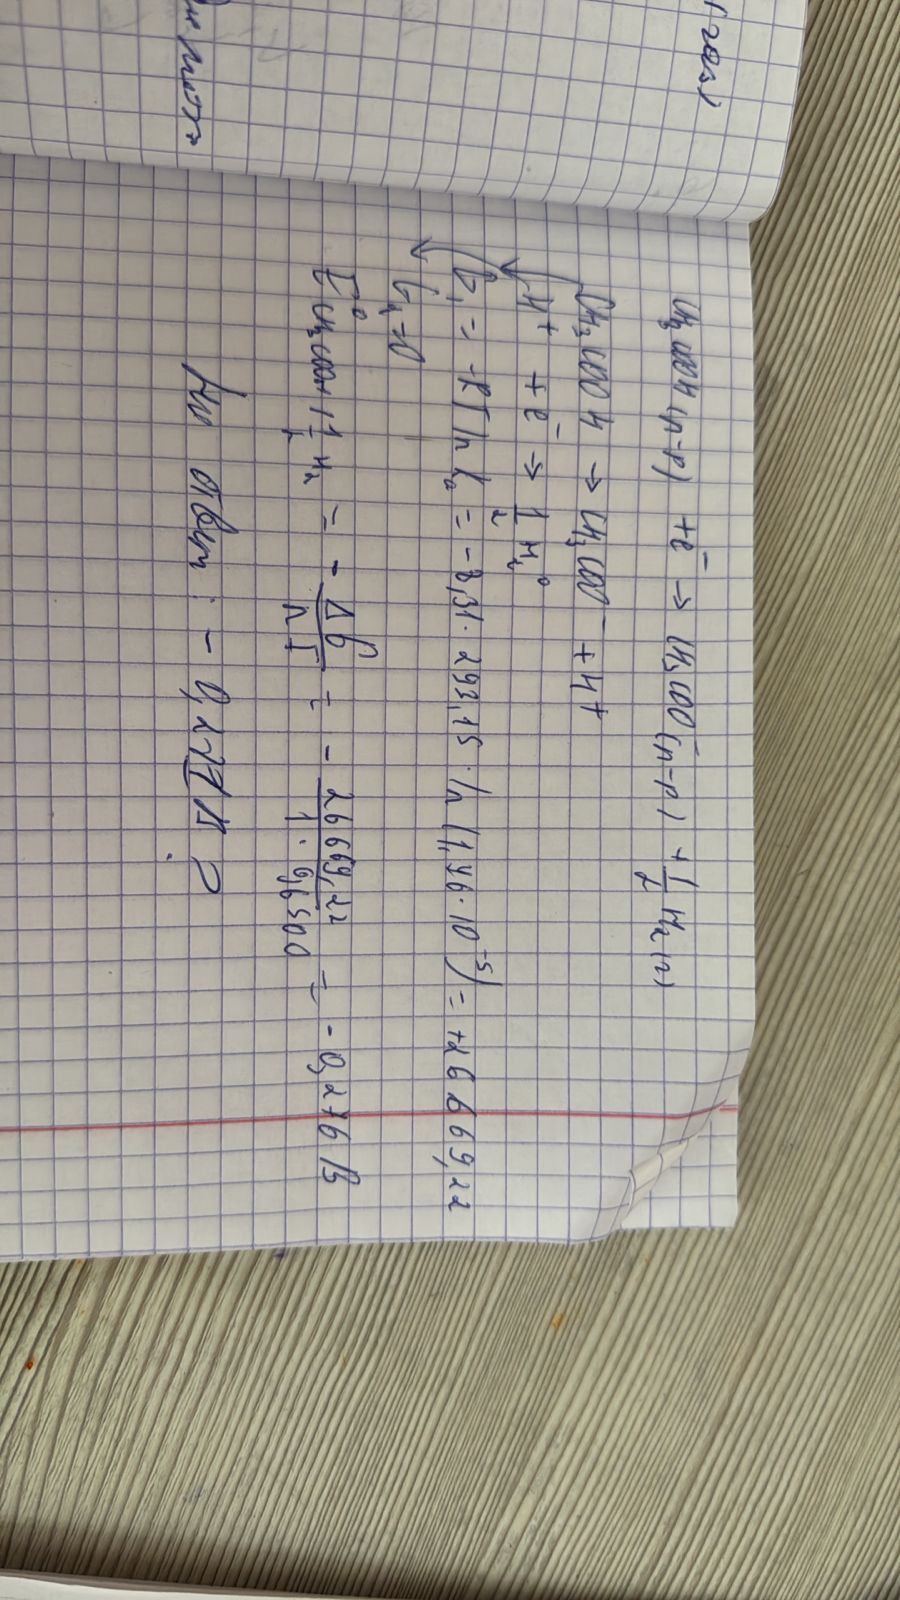 CH₃COOH (п-р) + e⁻ → CH₃COO⁻ (п-р) + 1/2 H₂ (г)
CH₃COOH → CH₃COO⁻ + H+
H⁺ + e⁻ → 1/2 H₂⁰
G₁ = -RT ln kₐ = -8,31 · 293,15 · ln (1,76 · 10⁻⁵) = +26669,22
G₂ = 0
E⁰ CH₃COOH | 1/2 H₂ = - ΔG/nF = - 26669,22/1 · 96500 = - 0,276 В
Но ответ : - 0,277 В ?
(газ)